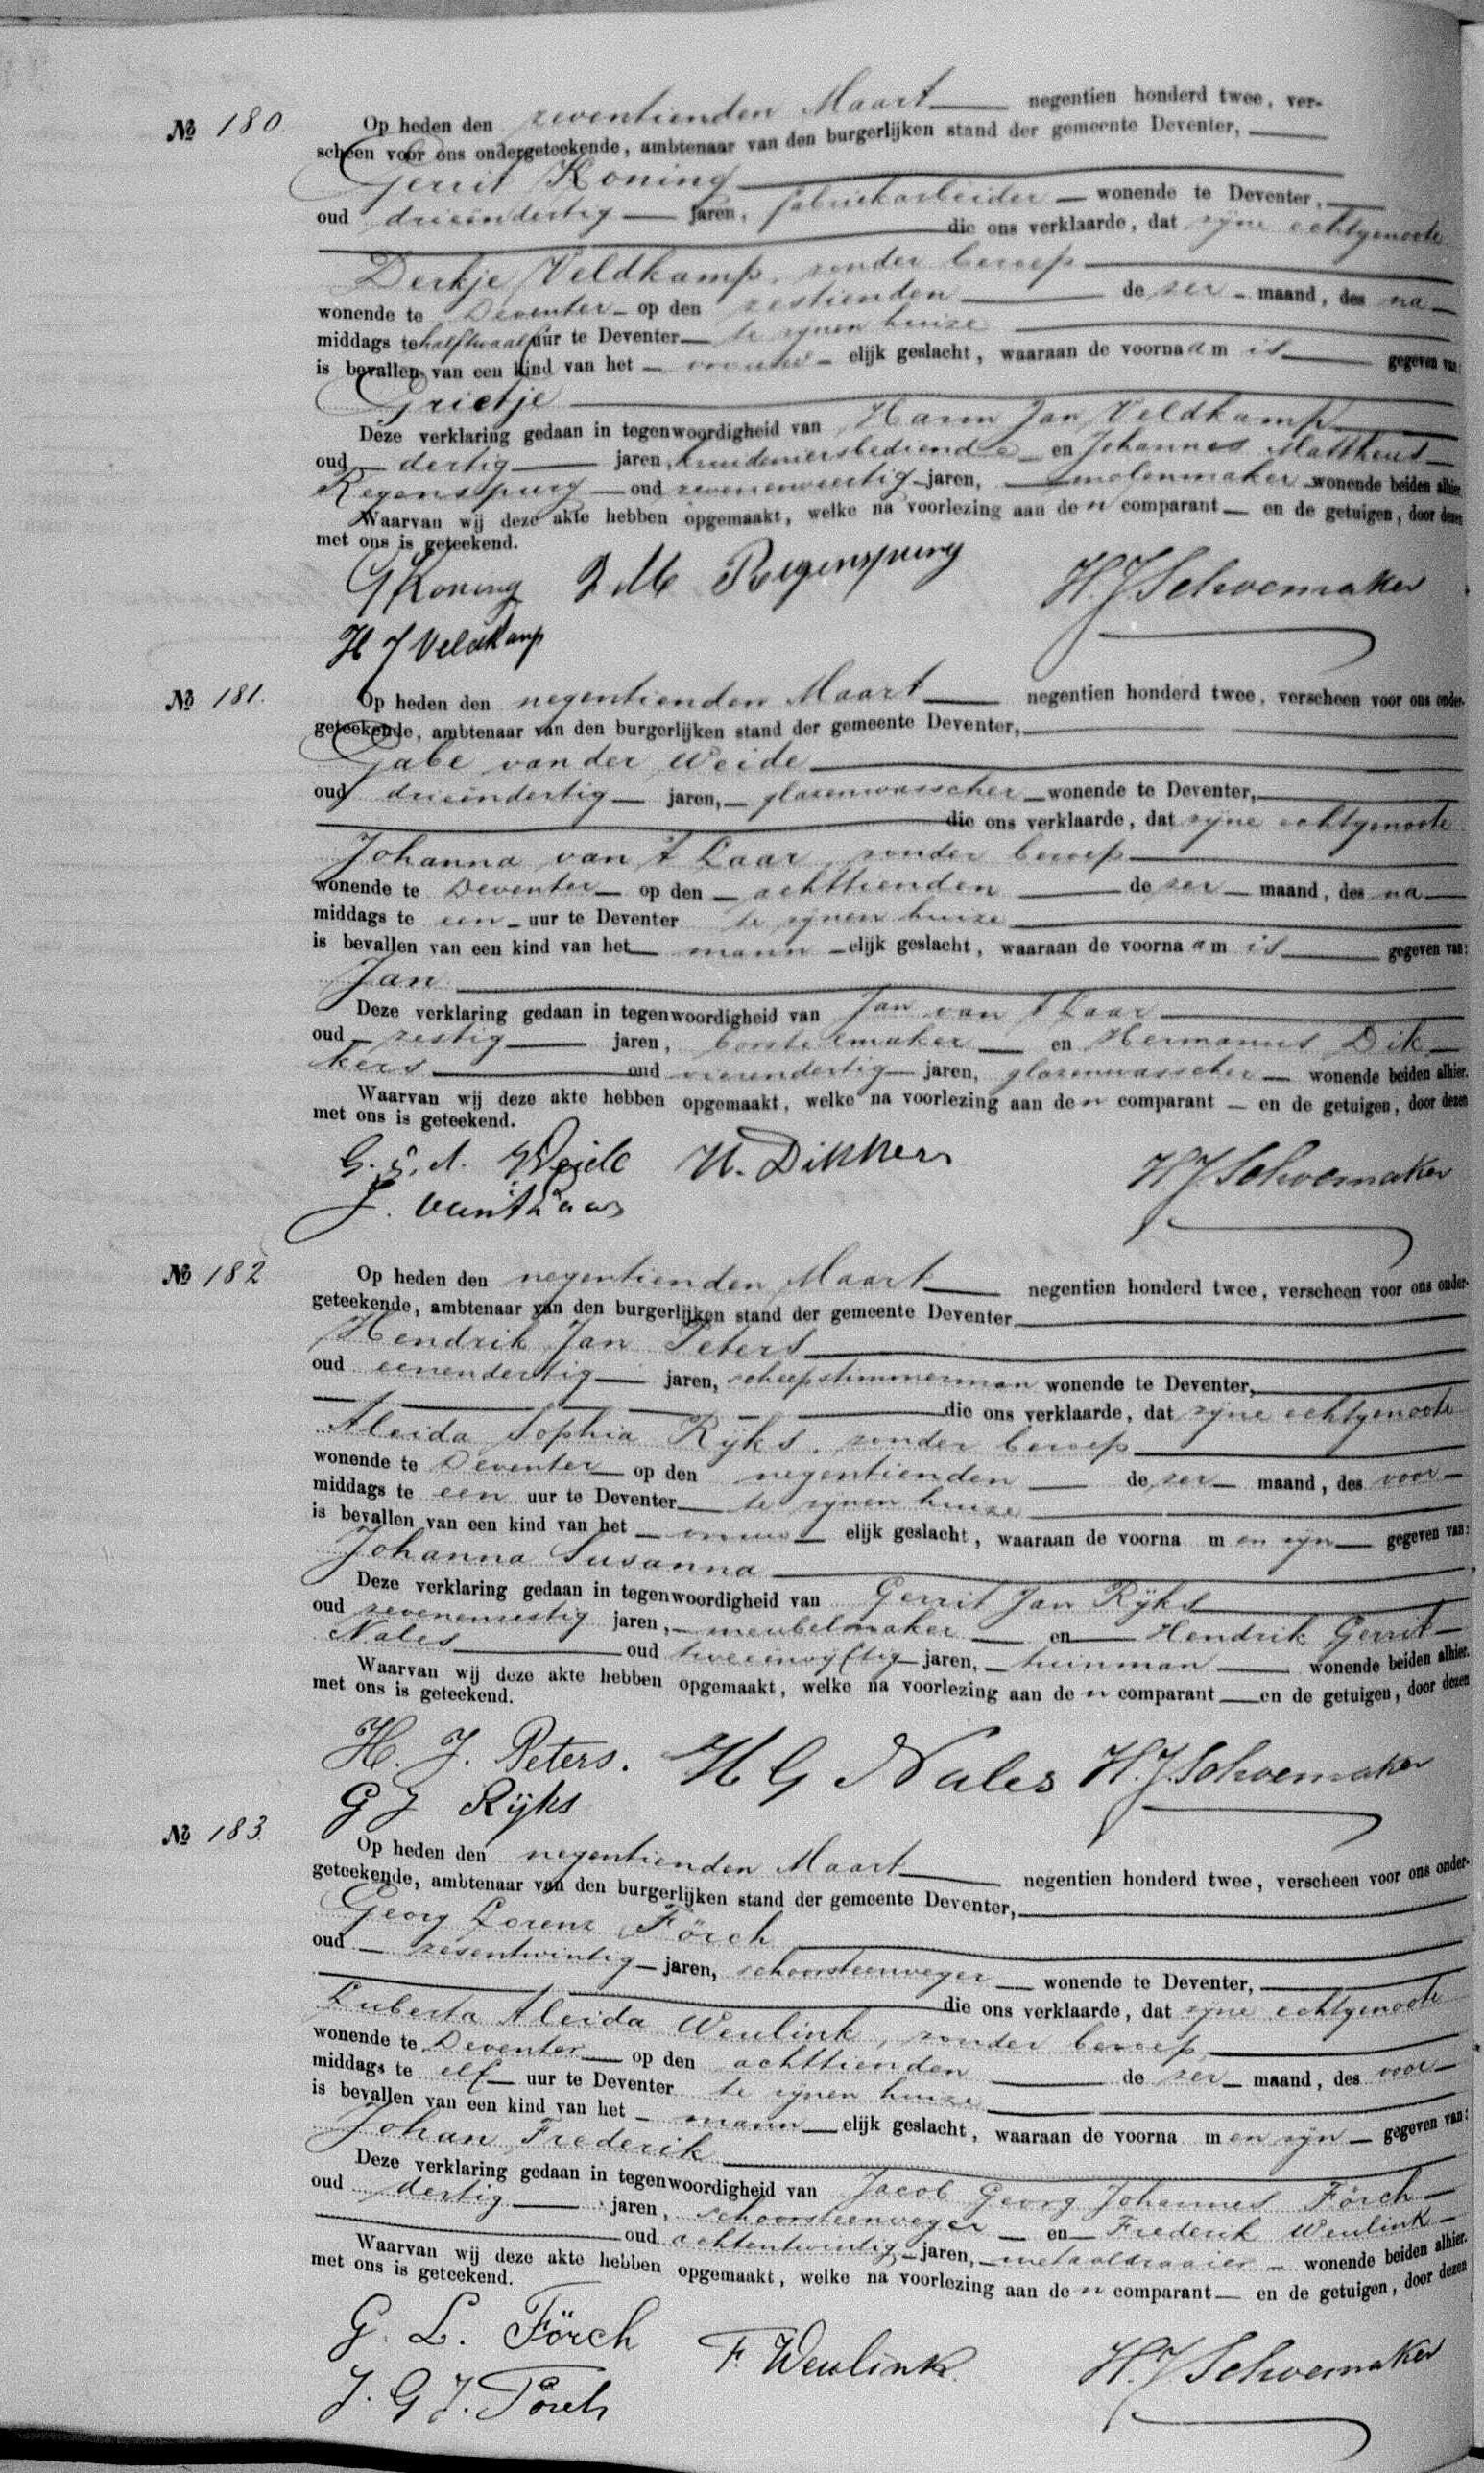 № 180. Op heden den zeventienden Maart negentien honderd twee, ver-
scheen voor ons ondergeteekende, ambtenaar van den burgerlijken stand der gemeente Deventer,
Gerrit Koning
oud drieëndertig jaren, fabriekarbeider wonende te Deventer,
die ons verklaarde, dat zijne echtgenoote
Derkje Veldkamp, zonder beroep
wonende te Deventer op den zestienden de zer maand, des na
middags te half twaalf uur te Deventer te zijnen huize
is bevallen van een kind van het vrouw elijk geslacht, waaraan de voornaam is gegeven van:
Grietje
Deze verklaring gedaan in tegenwoordigheid van Harm Jan Veldkamp
oud dertig jaren, kruideniersbediende en Johannes Mattheus
Regenspurg oud zevenenveertig jaren, molenmaker wonende beiden alhier.
Waarvan wij deze akte hebben opgemaakt, welke na voorlezing aan den comparant en de getuigen, door dezen
met ons is geteekend.
G Koning J M Regenspurg H.J Schoemaker
H J Veldkamp
№ 181. Op heden den negentienden Maart negentien honderd twee, verscheen voor ons onder-
geteekende, ambtenaar van den burgerlijken stand der gemeente Deventer,
Gabe van der Weide
oud drieëndertig jaren, glazenwasscher wonende te Deventer,
die ons verklaarde, dat zijne echtgenoote
Johanna van 't Laar, zonder beroep
wonende te Deventer op den achttienden de zer maand, des na
middags te een uur te Deventer te zijnen huize
is bevallen van een kind van het mann elijk geslacht, waaraan de voornaam is gegeven van:
Jan
Deze verklaring gedaan in tegenwoordigheid van Jan van 't Laar
oud zestig jaren, borstelmaker en Hermanus Dik
kers oud vierendertig jaren, glazenwasscher wonende beiden alhier.
Waarvan wij deze akte hebben opgemaakt, welke na voorlezing aan den comparant en de getuigen, door dezen
met ons is geteekend.
G. v. d. Weide H. Dikkers H J Schoemaker
J. van 't Laar
№ 182 Op heden den negentienden Maart negentien honderd twee, verscheen voor ons onder-
geteekende, ambtenaar van den burgerlijken stand der gemeente Deventer
Hendrik Jan Peters
oud eenendertig jaren, scheepstimmerman wonende te Deventer,
die ons verklaarde, dat zijne echtgenoote
Aleida Sophia Rijks, zonder beroep
wonende te Deventer op den negentienden de zer maand, des voor
middags te een uur te Deventer te zijnen huize
is bevallen van een kind van het vrouw elijk geslacht, waaraan de voorna men zijn gegeven van:
Johanna Susanna
Deze verklaring gedaan in tegenwoordigheid van Gerrit Jan Rijks
oud zevenenzestig jaren, meubelmaker en Hendrik Gerrit
Nales oud tweeenvijftig jaren, tuinman wonende beiden alhier.
Waarvan wij deze akte hebben opgemaakt, welke na voorlezing aan den comparant en de getuigen, door dezen
met ons is geteekend.
H. J. Peters. H G Nales H.J. Schoemaker
G J Rijks
№ 183 Op heden den negentienden Maart negentien honderd twee, verscheen voor ons onder-
geteekende, ambtenaar van den burgerlijken stand der gemeente Deventer,
Georg Lorenz Förch
oud zesentwintig jaren, schoorsteenveger wonende te Deventer,
die ons verklaarde, dat zijne echtgenoote
Luberta Aleida Weulink, zonder beroep,
wonende te Deventer op den achttienden de zer maand, des voor
middags te elf uur te Deventer te zijnen huize
is bevallen van een kind van het mann elijk geslacht, waaraan de voorna men zijn gegeven van:
Johan Frederik
Deze verklaring gedaan in tegenwoordigheid van Jacob Georg Johannes Förch
oud dertig jaren, schoorsteenveger en Frederik Weulink
oud achtentwintig jaren, metaaldraaier wonende beiden alhier.
Waarvan wij deze akte hebben opgemaakt, welke na voorlezing aan den comparant en de getuigen, door dezen
met ons is geteekend.
G. L. Förch F. Weulink H.J Schoemaker
J. G J. Förch